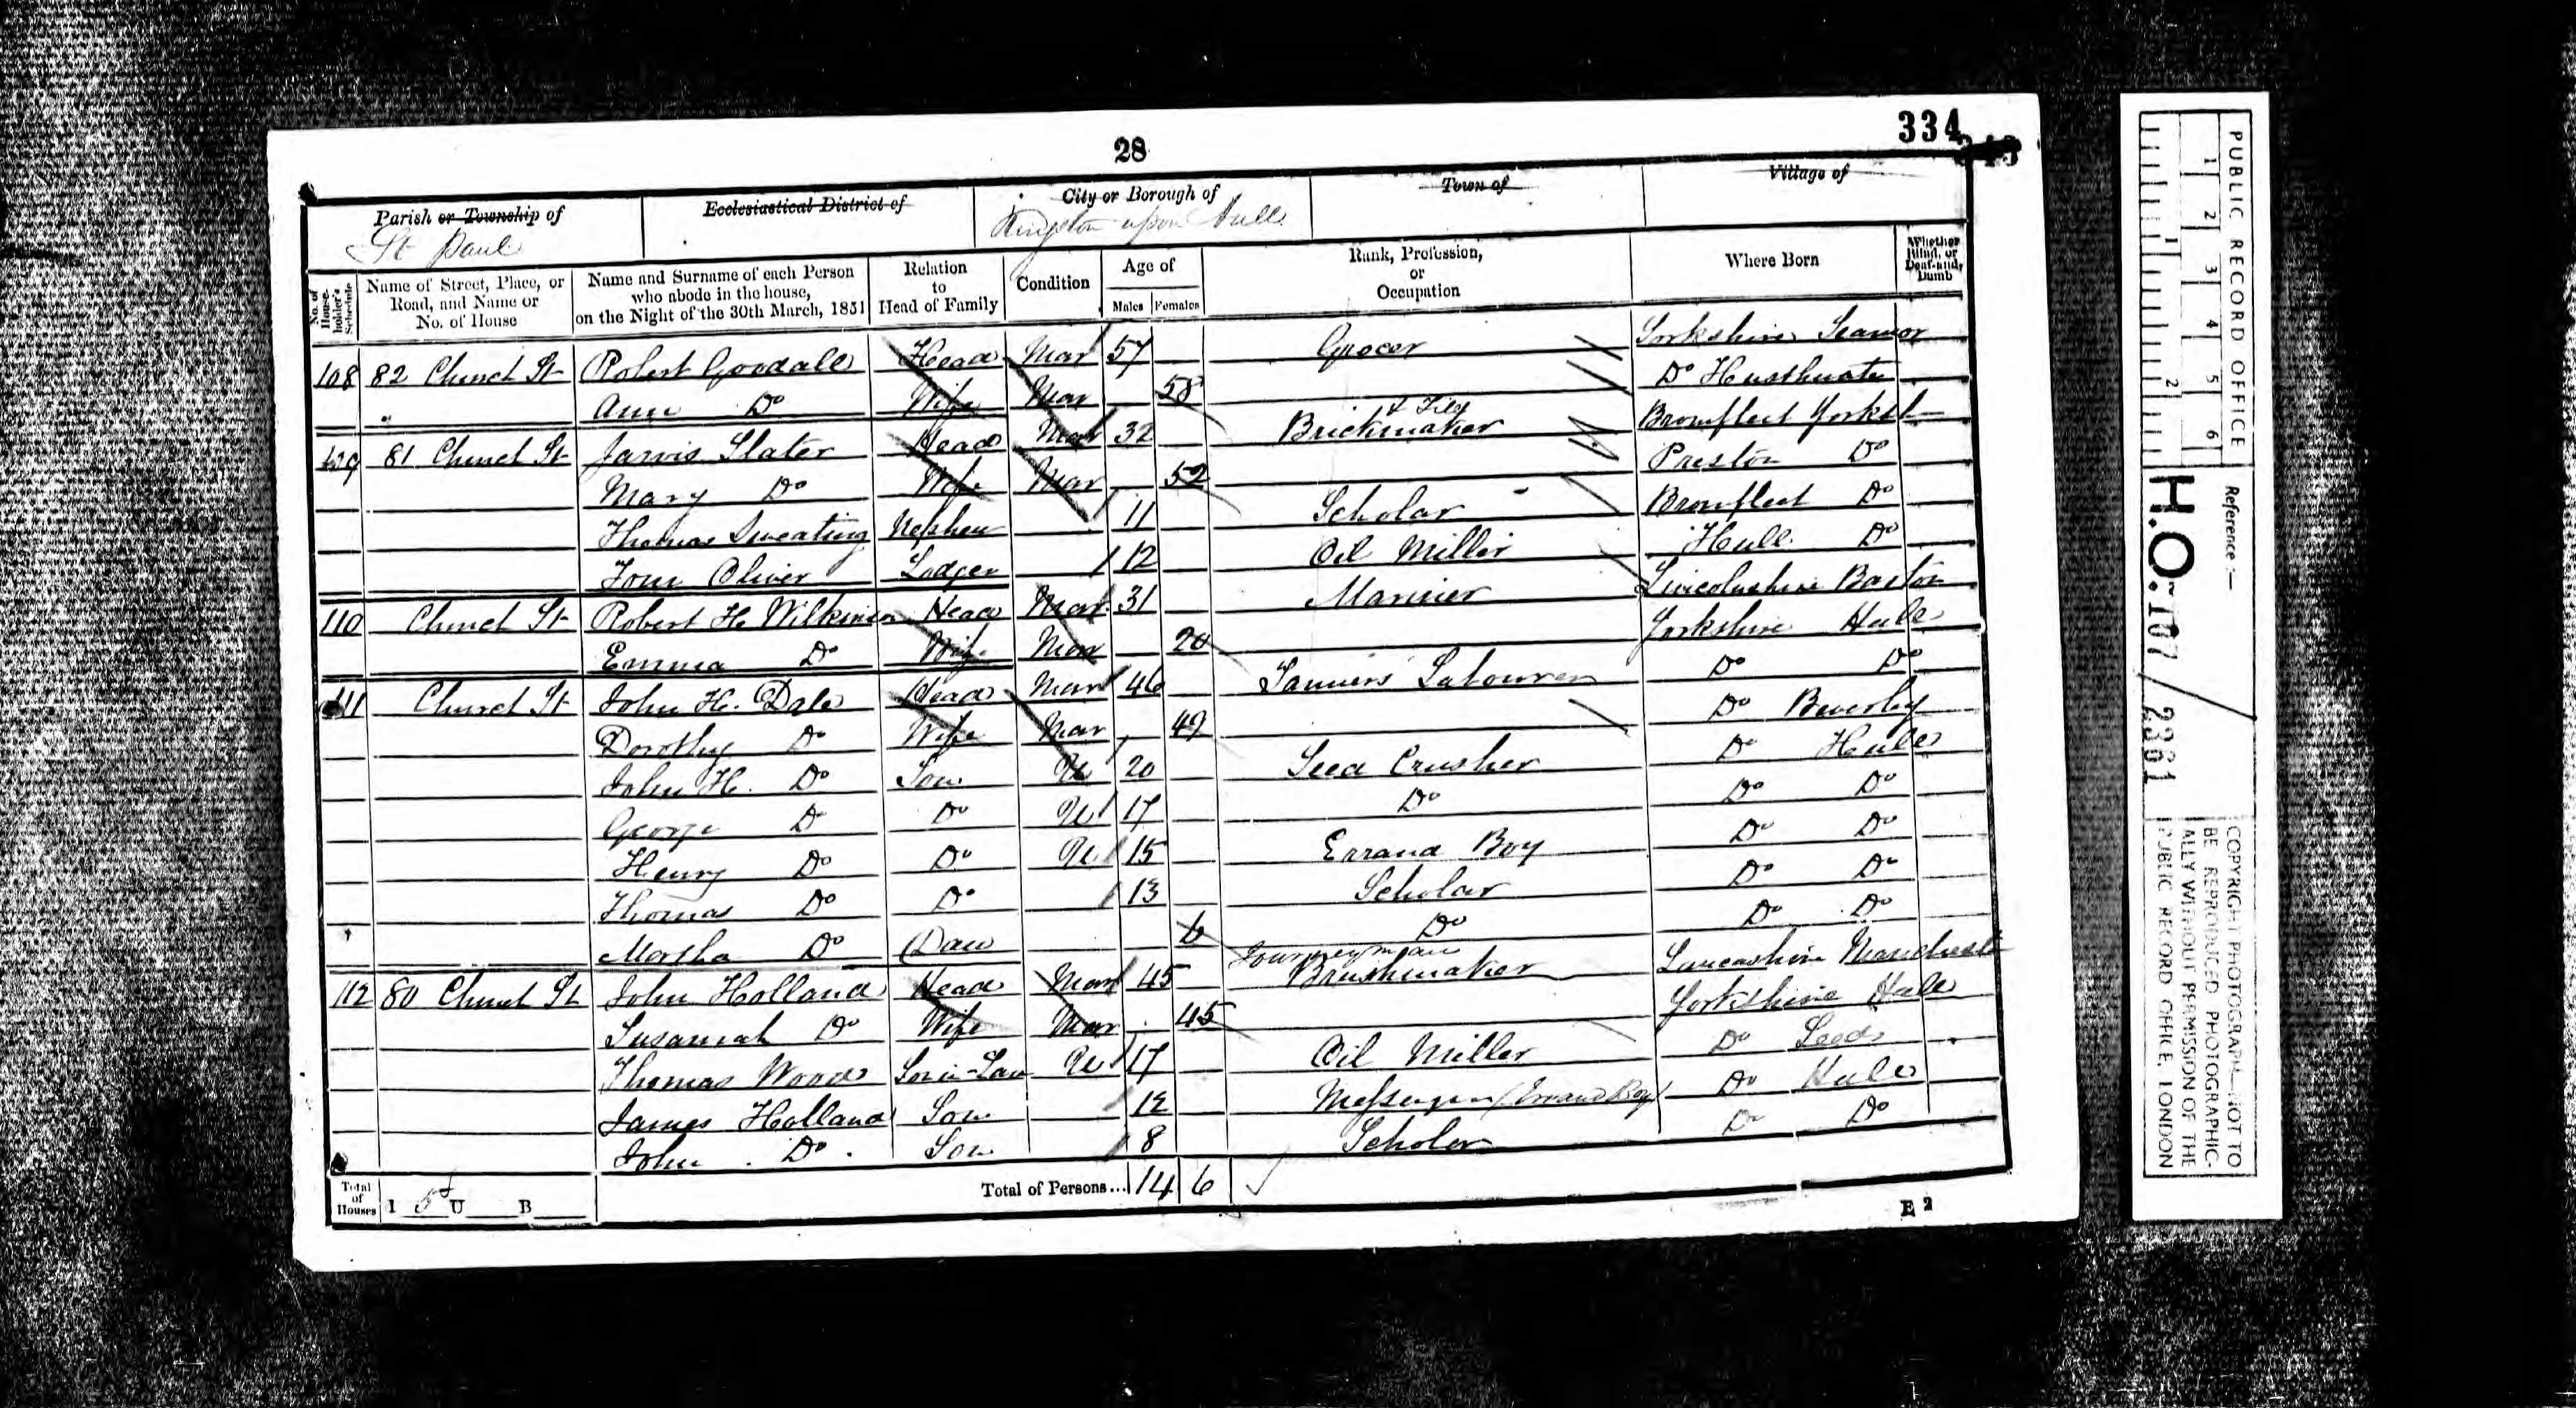 334
28
Parish or Township of Ecclesiastical District of City or Borough of Town of Village of
St Paul Kingston upon Hull
No. of House-holder's Schedule Name of Street, Place, or Road, and Name or No. of House Name and Surname of each Person who abode in the house, on the Night of the 30th March, 1851 Relation to Head of Family Condition Age of Males Females Rank, Profession, or Occupation Where Born Whether Blind, or Deaf-and-Dumb
108 82 Church St Robert Goodall Head Mar 57 Grocer Yorkshire Seamor
" Ann Do Wife Mar 58 Do Husthwaite
109 81 Church St Jarvis Slater Head Mar 32 Brickmaker & Tile Bromfleet Yorksh
Mary Do Wife Mar 52 Preston Do
Thomas Sweating Nephew 11 Scholar Bromfleet Do
Tom Oliver Lodger 12 Oil Miller Hull Do
110 Church St Robert H. Wilkinson Head Mar 31 Mariner Lincolnshire Barton
Emma Do Wife Mar 20 Yorkshire Hull
111 Church St John H. Dale Head Mar 46 Tanners Labourer Do Do
Dorothy Do Wife Mar 49 Do Beverley
John H. Do Son U 20 Seed Crusher Do Hull
George D Do U 17 Do Do Do
Henry Do Do U 15 Errand Boy Do Do
Thomas Do Do 13 Scholar Do Do
Martha Do Daur 6 Do Do Do
112 80 Church St John Holland Head Mar 45 Journeyman Brushmaker Lancashire Manchest
Susannah Do Wife Mar 45 Yorkshire Hull
Thomas Wood Son in-Law U 17 Oil Miller Do Leeds
James Holland Son 12 Messenger (Errand Boy) Do Hull
John Do Son 8 Scholar Do Do
Total of Houses I 5 U B Total of Persons... 14 6
E 2
PUBLIC RECORD OFFICE
1 2 3 4 5 6
1 2
Reference:—
H.O. 107 / 2361
COPYRIGHT PHOTOGRAPH—NOT TO
BE REPRODUCED PHOTOGRAPHIC-
ALLY WITHOUT PERMISSION OF THE
PUBLIC RECORD OFFICE, LONDON